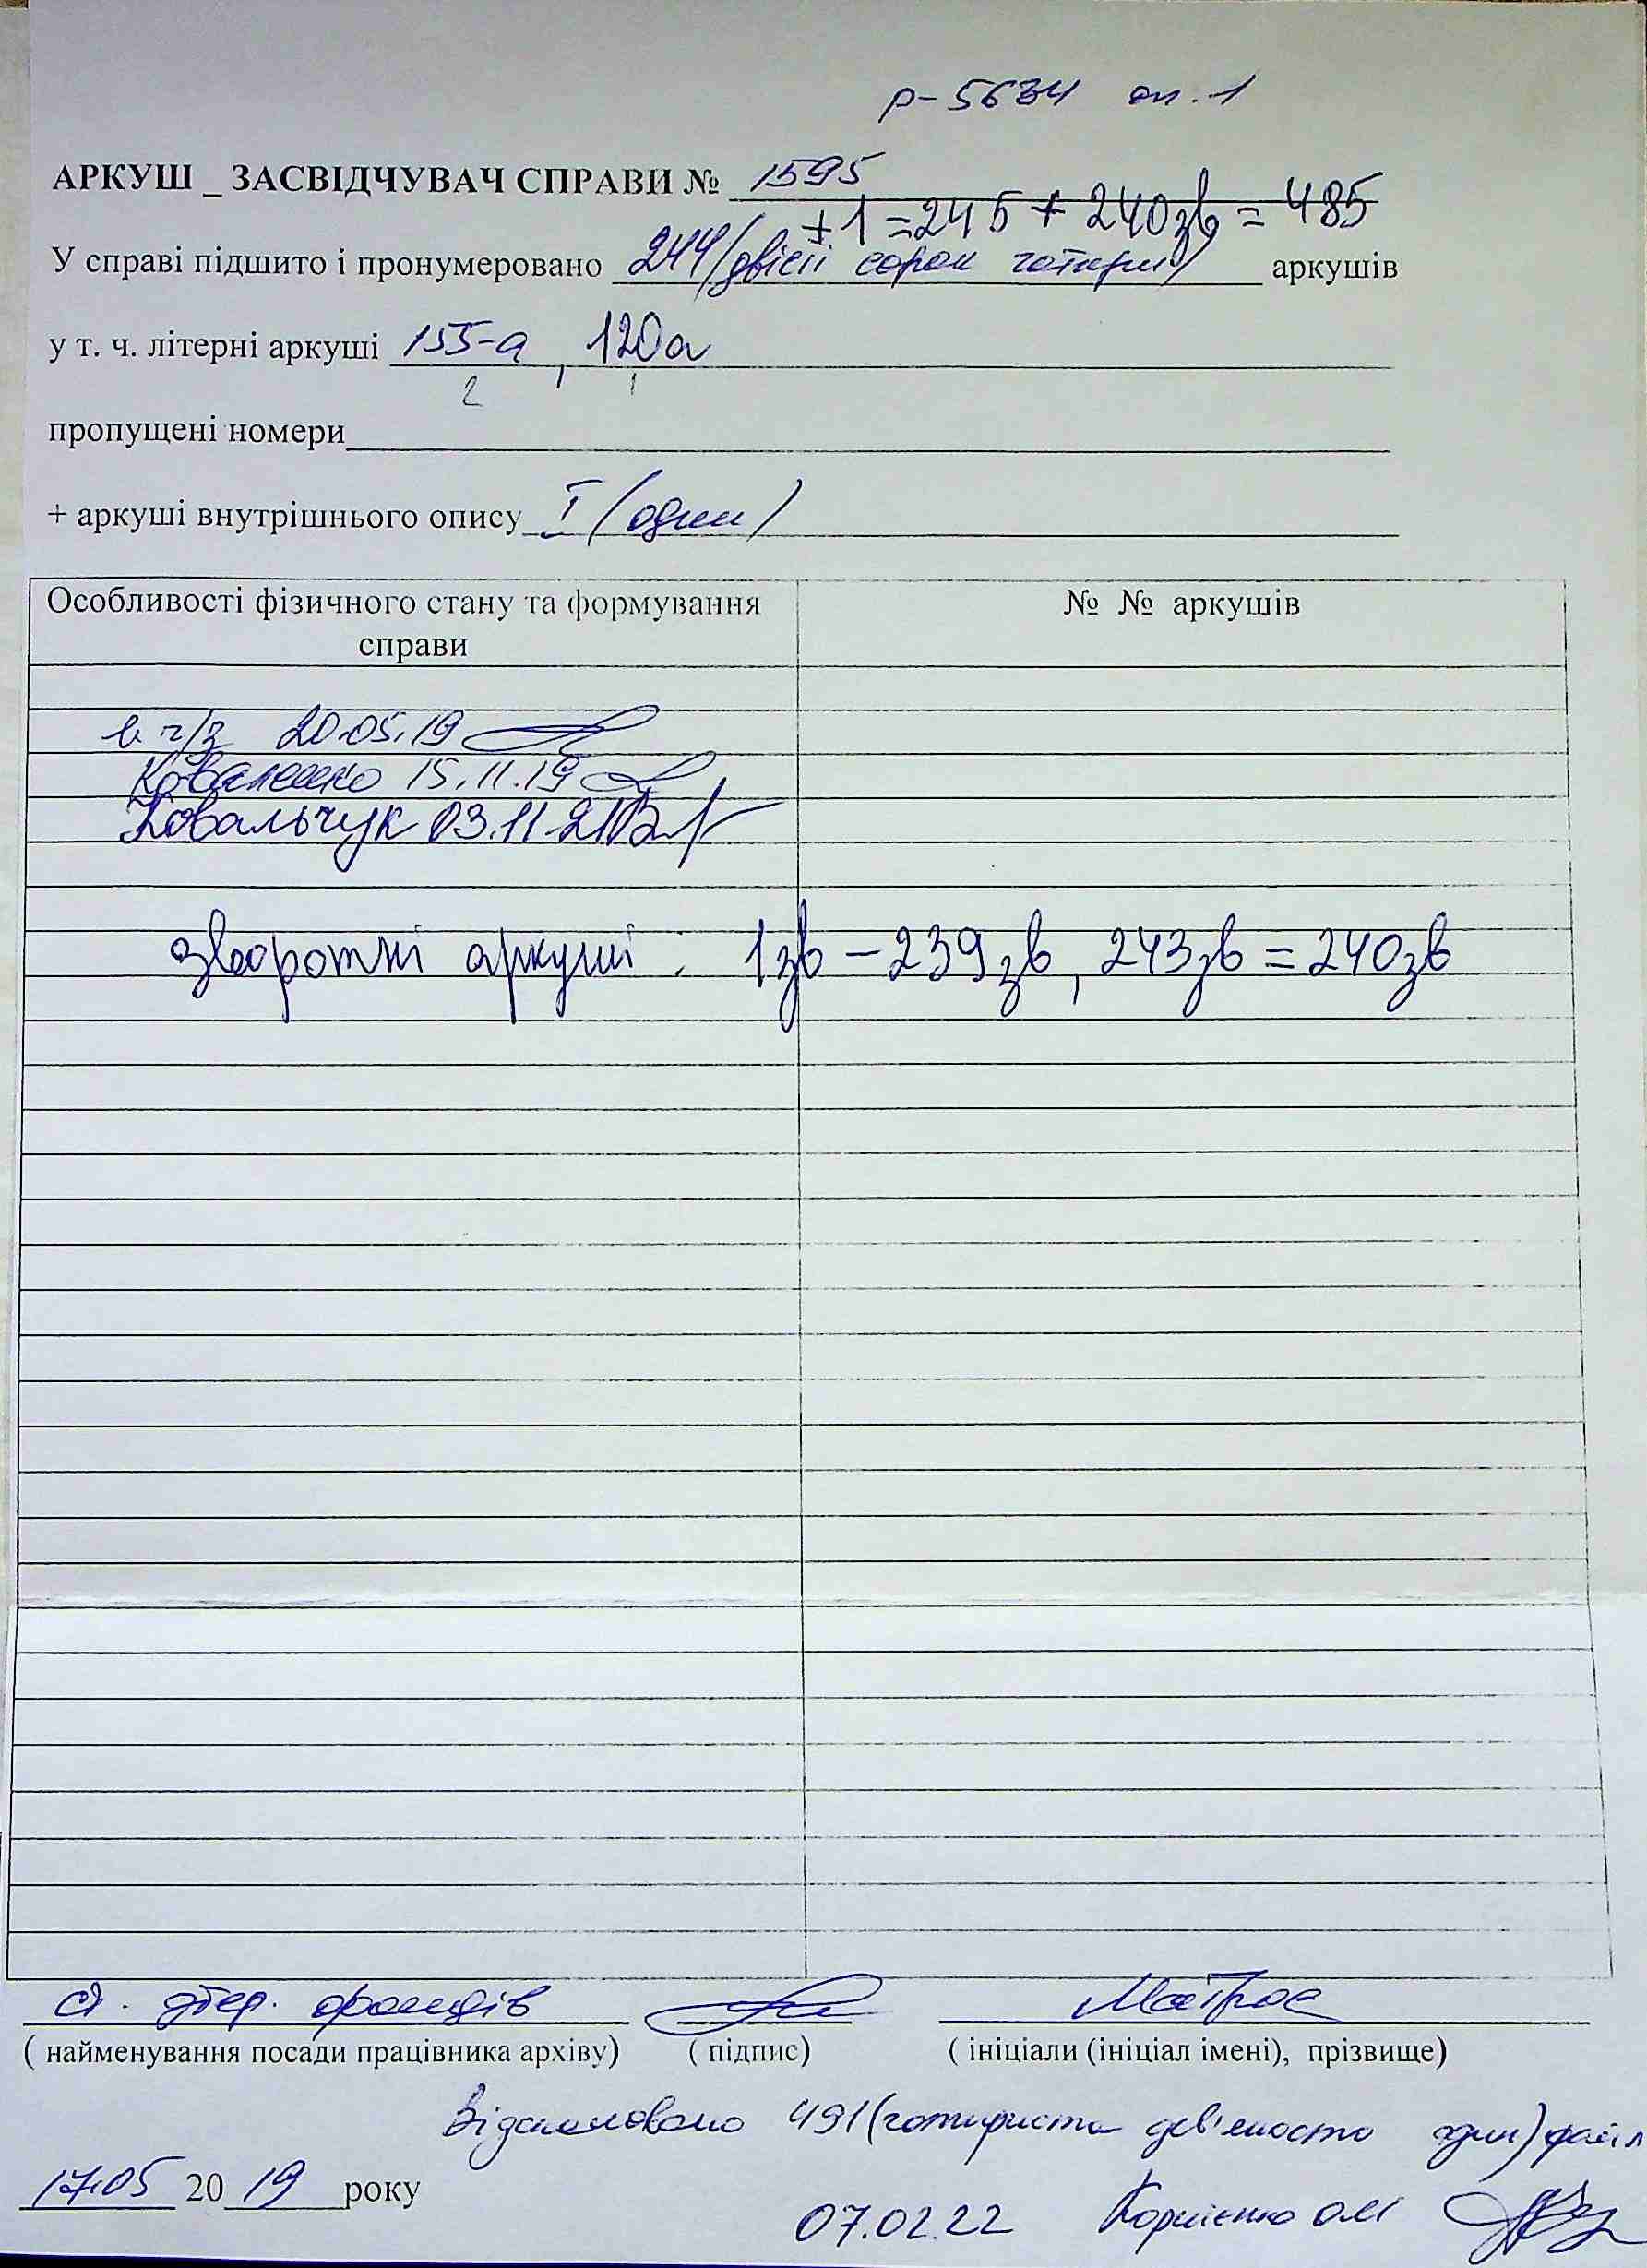 р-5634 оп. 1
АРКУШ _ ЗАСВІДЧУВАЧ СПРАВИ № 1595
+1 = 245 + 240зв = 485
У справі підшито і пронумеровано 244 (двісті сорок чотири) аркушів
у т. ч. літерні аркуші 155-а, 120а
2 1
пропущені номери
+ аркуші внутрішнього опису I (один)
Особливості фізичного стану та формування справи
№ № аркушів
в ч/з 20.05.19
Коваленко 15.11.19
Ковальчук 03.11.21
зворотні аркуші: 1зв – 239зв, 243зв = 240зв
ст. збер. фондів Матрос
( найменування посади працівника архіву) ( підпис) ( ініціали (ініціал імені), прізвище)
Відскановано 491 (чотириста дев'яносто один) файл
17.05 2019 року
07.02.22 Корнієнко О.М.